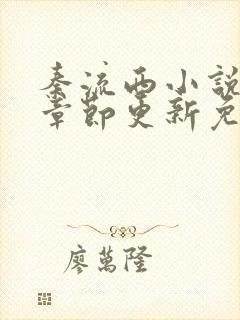 秦流西小說
章節更新免
廖萬隆